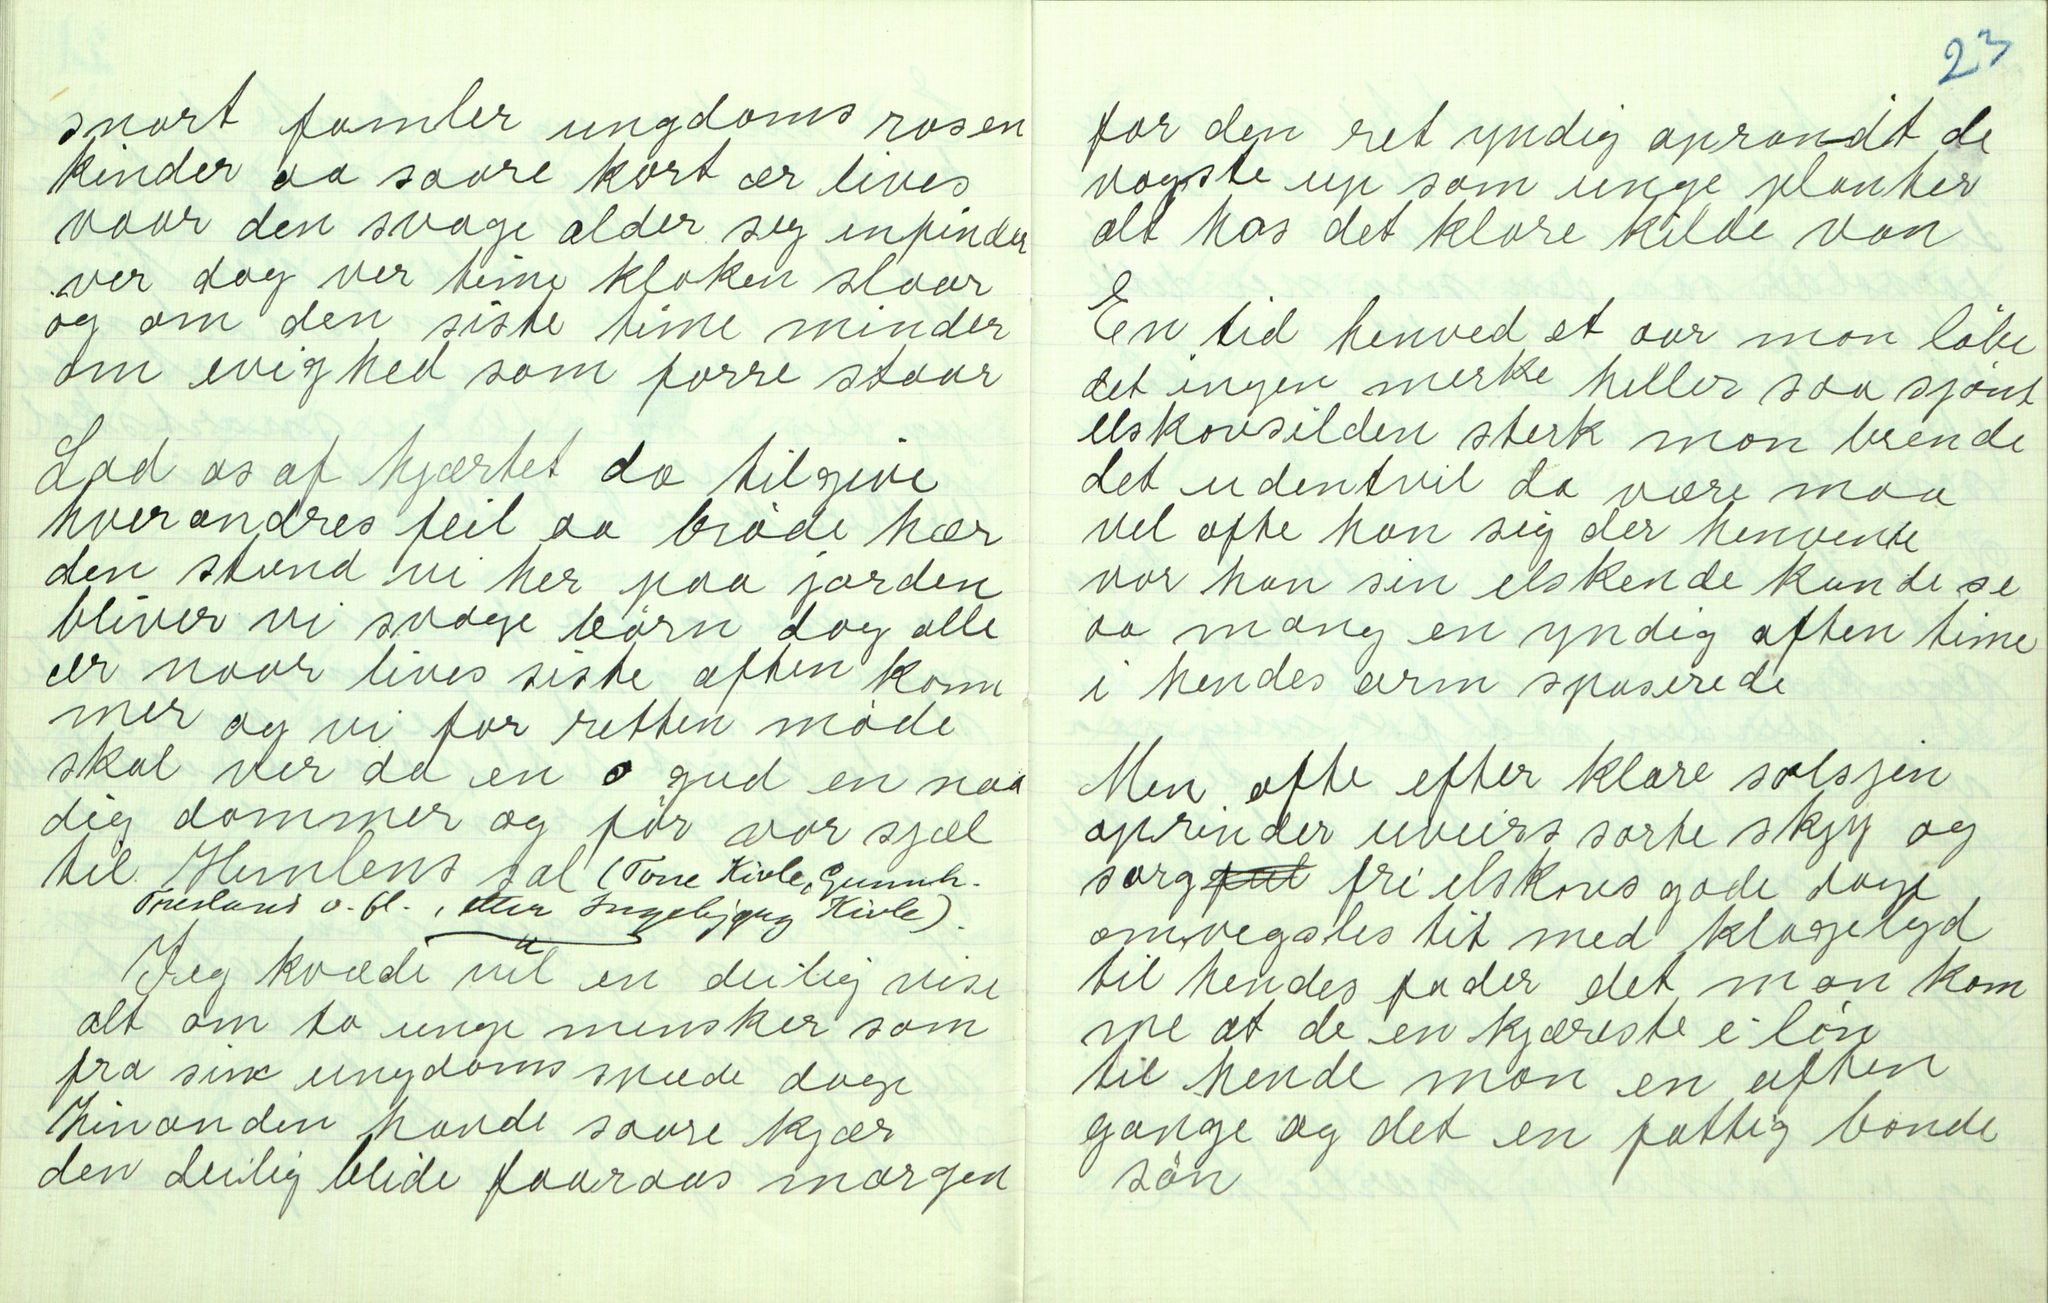 snort famler ungdoms rosen
kinder aa saare kort ær lives
vaar den svage alder seg infinder
ver dag ver time kloken slaar
og om den siste time minder
om evighed som forre staar
Lad os af hjærtet da tilgive
hverandres feil aa bröde hær
den stund vi her paa jorden
bliver vi svage börn dog alle
ær naar lives siste aften kom
mer og vi for retten möde
skal ver da en o gud en naa
dig dommer og för vor sjæl
til Himlens sal (Tone Kivle, Gunnh.
o. fl., etter Ingebjørg Kivle).
Jeg kvæde vil en deilig vise
alt om to unge mensker som
fra sine ungdoms spæde dage
hinanden havde saare kjær
den deilig blide faaraas morgen
23
for den ret yndig oprandt de
vogste up som unge planter
alt hos det klare kilde van
En tid henved et aar mon löbe
det ingen merke heller saa sjönt
elskovsilden sterk mon brende
det udentvil da være maa
vel ofte han sig der henvente
vor han sin elskende kunde se
aa mang en yndig aften time
i hendes arm spaserede
Men ofte efter klare solsjin
oprinder uveirs sorte skyy og
sorg fri elskovs gode dage
omvegsles tit med klagelyd
til hendes fader det mon kom
me at de en kjæreste i lön
til hende mon en aften
gange og det en fattig bonde
sön